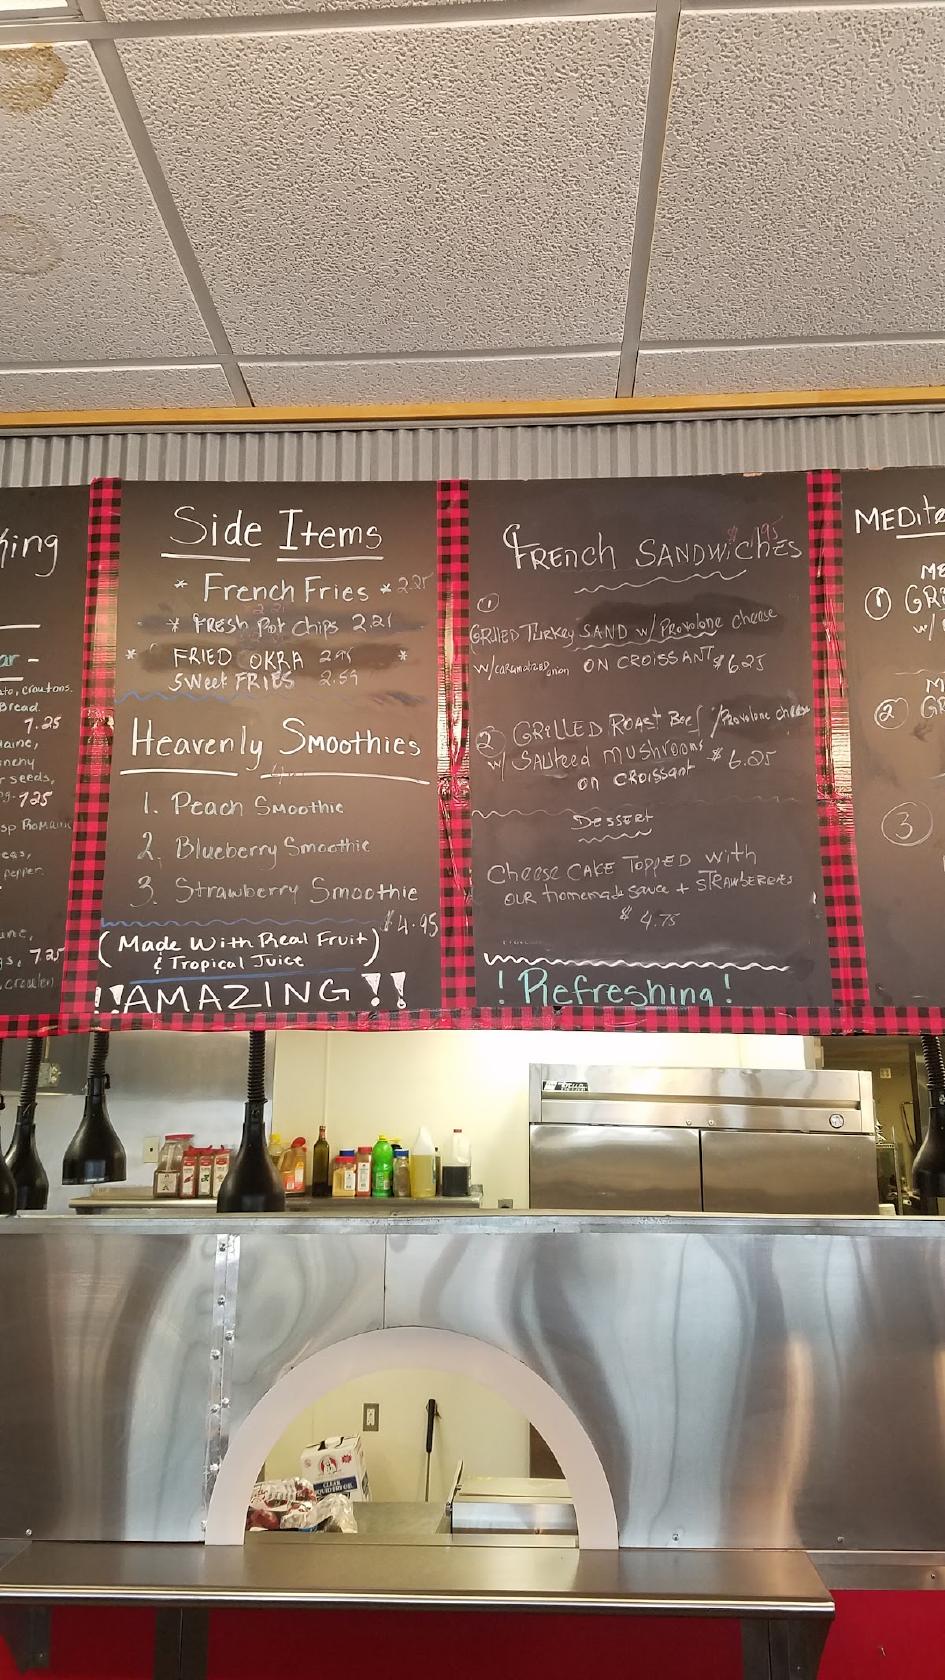 Side Items
* French Fries * 2.25
* FRESH Pot Chips 2.25
* FRIED OKRA 2.95 *
SWeet FRIES 2.59
Heavenly Smoothies
1. Peach Smoothie
2. Blueberry Smoothie
3. Strawberry Smoothie
$4.95
(Made With Real Fruit)
& Tropical Juice
!!AMAZING!!
FRENCH SANDWICHES
①
GRilled Turkey SAND w/ Provolone cheese
w/caramalized onion ON CROISSANT $6.25
② GRILLED ROAST Beef /Provolone cheese
w/ SAUteed mushrooms $6.25
on CROissant
Dessert
Cheese CAKE TOPPED with
OUR homemade sauce + STRAWBERRIES
$4.75
!Refreshing!
king
ar -
croutons.
Bread.
7.25
seeds,
7.25
sp Romaine
pepper.
7.25
MEDite
ME
① GRi
w/
M
② GR
③
CLEAR